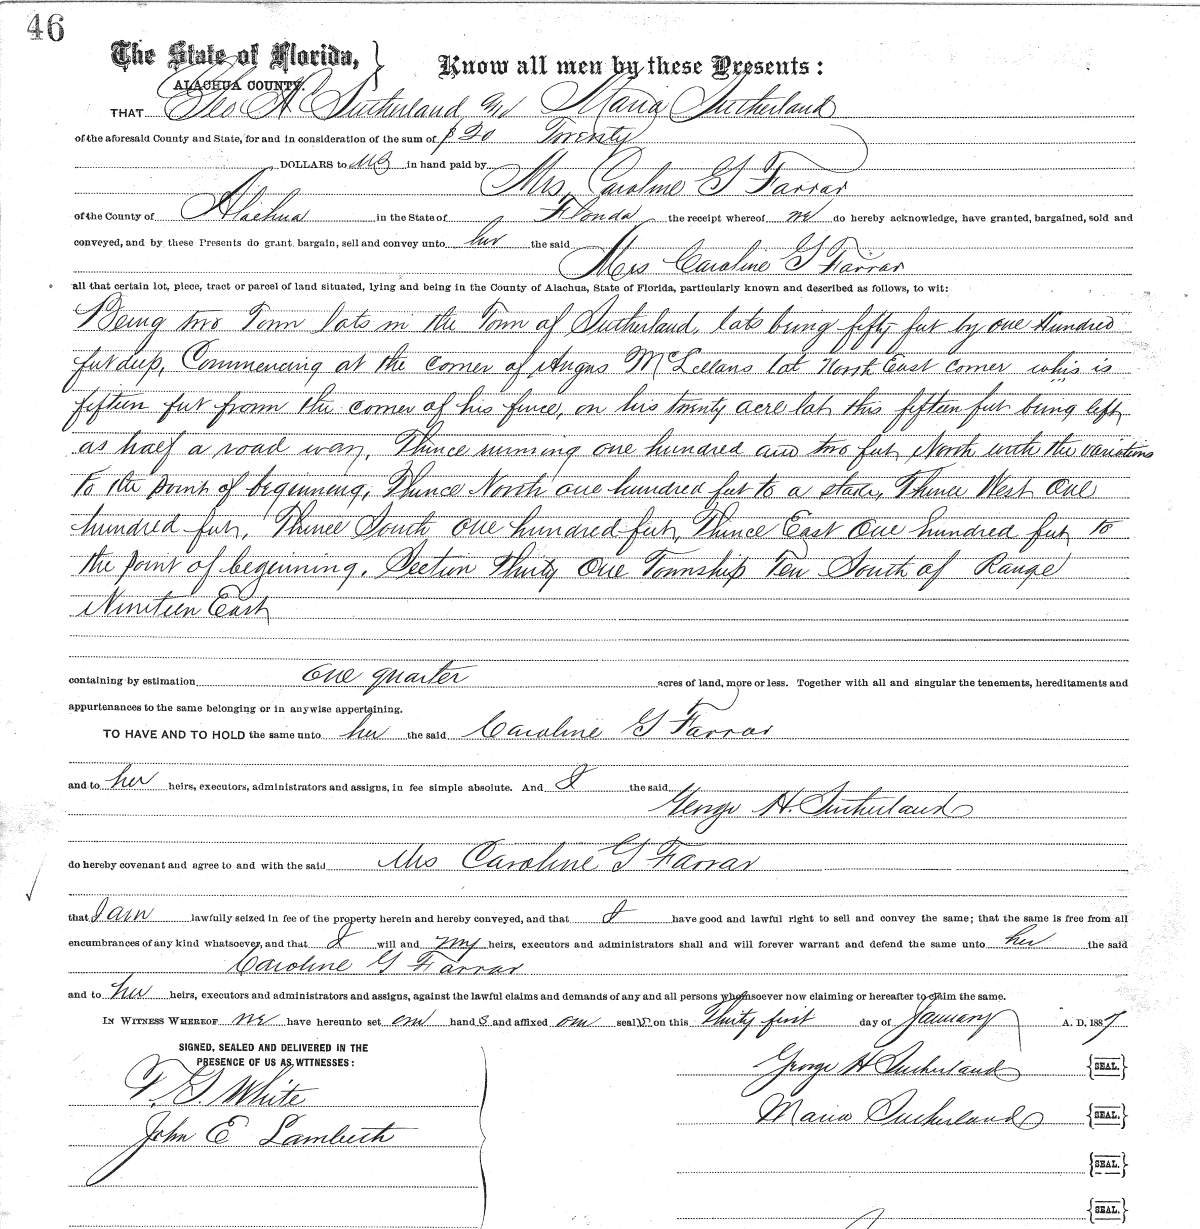 46
The State of Florida,
ALACHUA COUNTY.
Know all men by these Presents:
THAT Geo H Sutherland and Maria Sutherland
of the aforesaid County and State, for and in consideration of the sum of $20 Twenty
DOLLARS to us in hand paid by
Mrs, Caroline G Farrar
of the County of Alachua in the State of Florida the receipt whereof we do hereby acknowledge, have granted, bargained, sold and
conveyed, and by these Presents do grant, bargain, sell and convey unto her the said
Mrs Caroline G Farrar
all that certain lot, piece, tract or parcel of land situated, lying and being in the County of Alachua, State of Florida, particularly known and described as follows, to wit:
Being two Town lots in the Town of Sutherland, lots being fifty feet by one Hundred
feet deep, Commencing at the corner of Angus McLellans lot North East corner whis is
fifteen feet from the corner of his fence, on his twenty acre lot, this fifteen feet being left
as half a road way, Thence running one hundred and two feet North with the variations
to the point of beginning, Thence North one hundred feet to a stake, Thence West One
hundred feet, Thence South one hundred feet, Thence East One hundred feet to
the point of beginning. Section Thirty One Township Ten South of Range
Nineteen East
containing by estimation one quarter acres of land, more or less. Together with all and singular the tenements, hereditaments and
appurtenances to the same belonging or in anywise appertaining.
TO HAVE AND TO HOLD the same unto her the said Caroline G Farrar
and to her heirs, executors, administrators and assigns, in fee simple absolute. And I the said
George H. Sutherland
do hereby covenant and agree to and with the said Mrs Caroline G Farrar
that I am lawfully seized in fee of the property herein and hereby conveyed, and that I have good and lawful right to sell and convey the same; that the same is free from all
encumbrances of any kind whatsoever, and that I will and my heirs, executors and administrators shall and will forever warrant and defend the same unto her the said
Caroline G Farrar
and to her heirs, executors and administrators and assigns, against the lawful claims and demands of any and all persons whomsoever now claiming or hereafter to claim the same.
IN WITNESS WHEREOF we have hereunto set our hands and affixed our seals on this Thirty first day of January A. D. 1887
SIGNED, SEALED AND DELIVERED IN THE
PRESENCE OF US AS WITNESSES:
George H Sutherland {SEAL.}
T. G. White
Maria Sutherland {SEAL.}
John E Lambeth
{SEAL.}
{SEAL.}